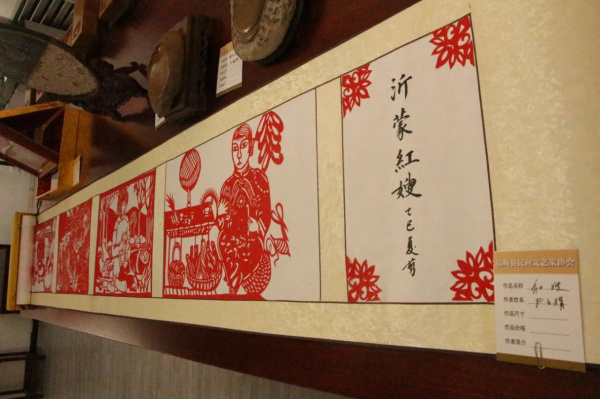 沂蒙紅嫂
乙巳夏剪
民间文艺家协会
作品名称
作者姓名
作品尺寸
作品价格
作者简介